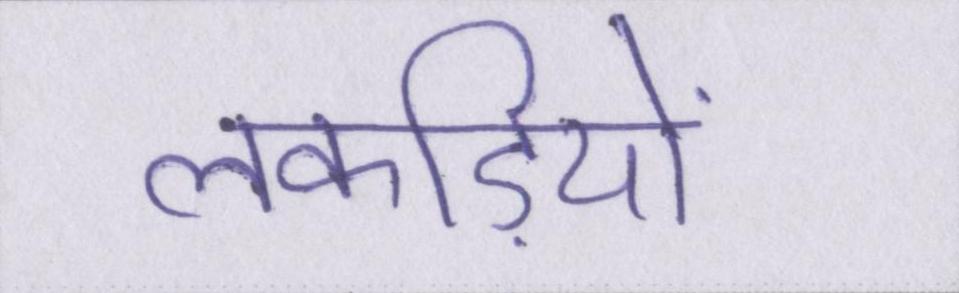 लकड़ियों